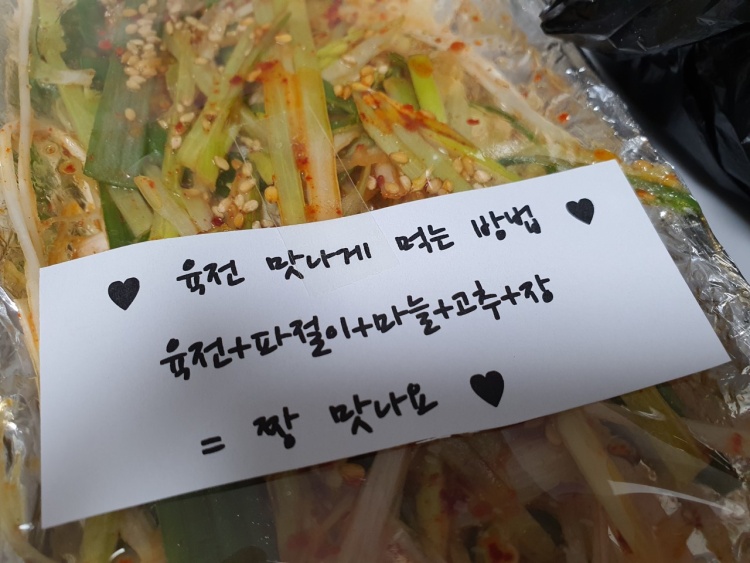 ♥ 육전 맛나게 먹는 방법 ♥
육전+파절이+마늘+고추+장
= 짱 맛나요 ♥